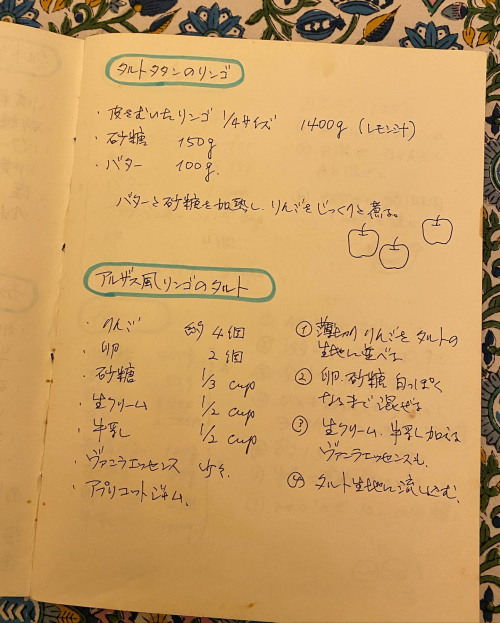 タルトタタンのリンゴ
・皮をむいたリンゴ 1/4サイズ 1400g (レモン汁)
・砂糖 150g
・バター 100g.
バターと砂糖を加熱し、りんごをじっくりと煮る。
アルザス風リンゴのタルト
・りんご 4個
・卵 2個
・砂糖 1/3 cup
・生クリーム 1/2 cup
・牛乳 1/2 cup
・ヴァニラエッセンス 少々.
・アプリコットジャム.
① 薄切りりんごをタルトの
生地に並べる
② 卵.砂糖 白っぽく
なるまで混ぜる
③ 生クリーム.牛乳し加える
ヴァニラエッセンスも.
④ タルト生地に流し込む.